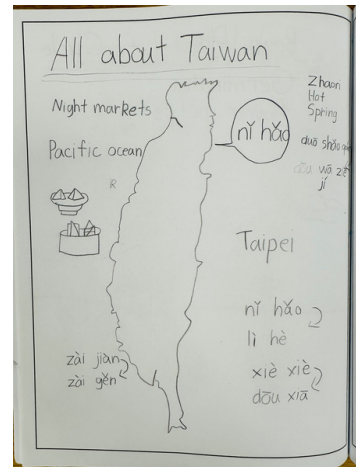 All about Taiwan
Night markets
Pacific ocean
Zhaon
Hot
Spring
nǐ hǎo
duō shǎo
wā
jí
Taipei
nǐ hǎo
lì hè
xiè xiè
dōu xiā
zài jiàn
zài gěn